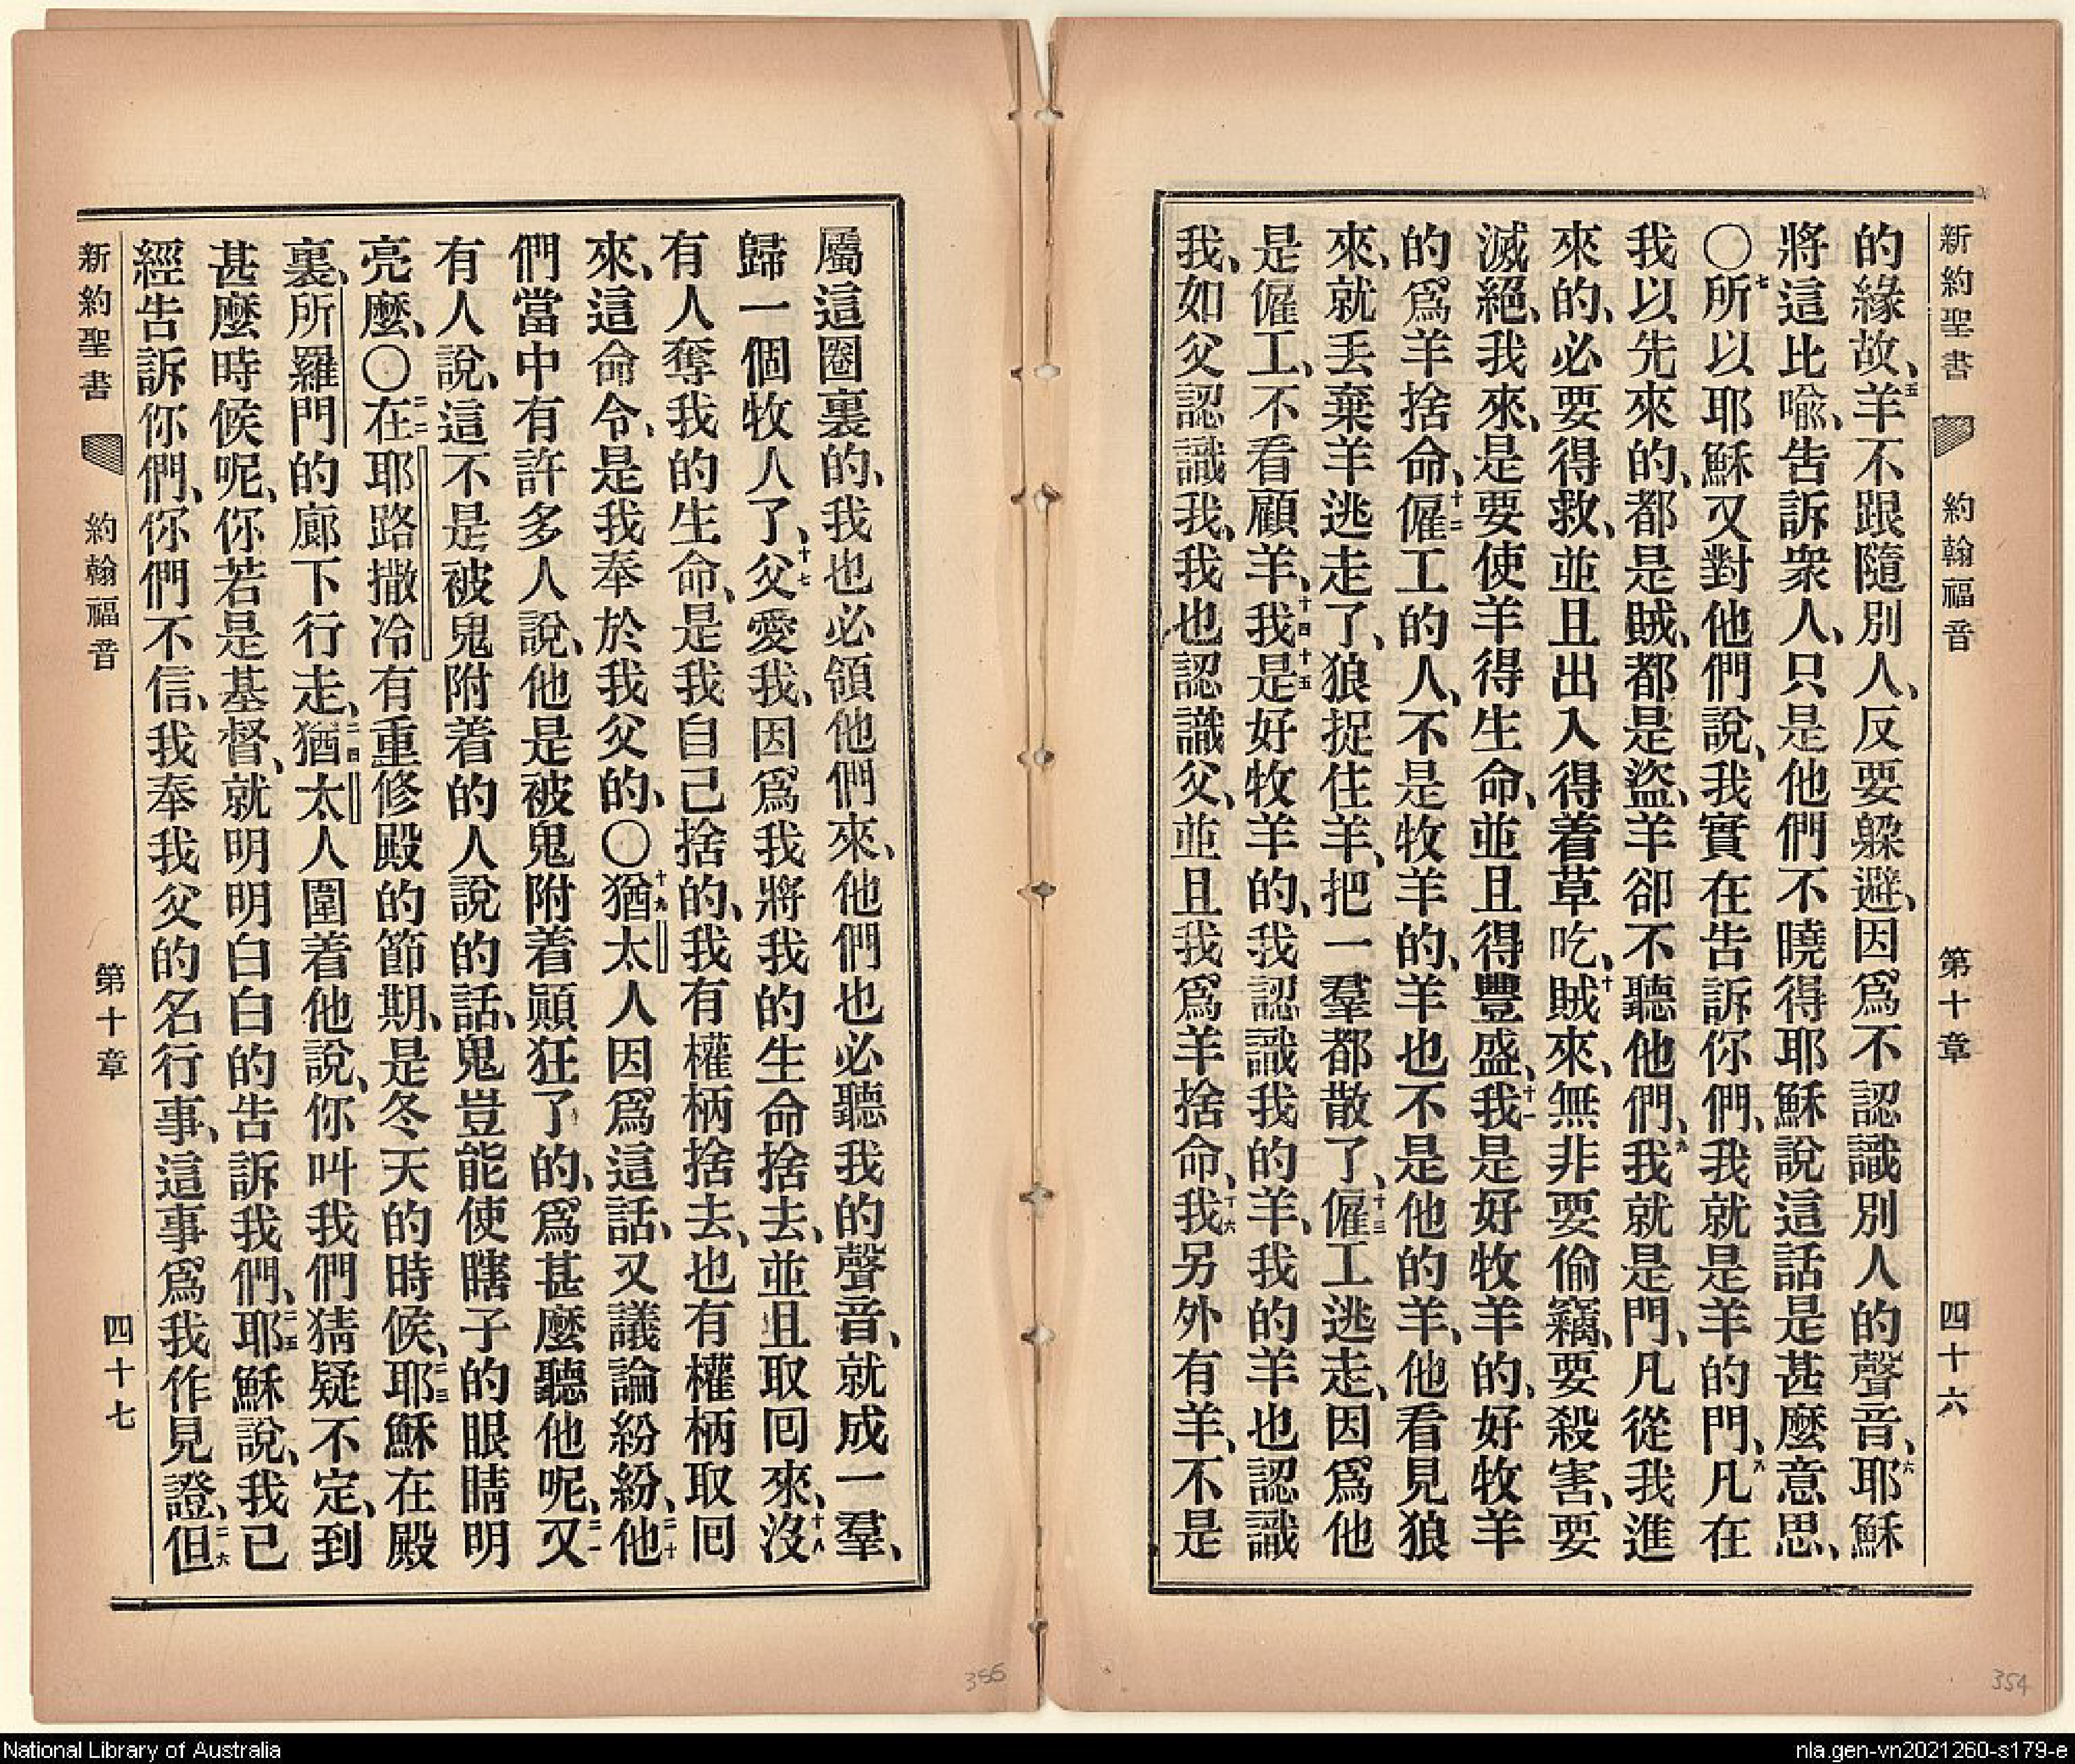 新約聖書 約翰福音 第十章 四十六
的緣故、五羊不跟隨別人、反要躱避、因爲不認識別人的聲音、六耶穌
將這比喩、告訴衆人、只是他們不曉得耶穌說這話是甚麼意思、
〇七所以耶穌又對他們說、我實在告訴你們、我就是羊的門、八凡在
我以先來的、都是賊、都是盜、羊卻不聽他們、九我就是門、凡從我進
來的、必要得救、並且出入得着草吃、十賊來、無非要偷竊、要殺害、要
滅絕、我來、是要使羊得生命、並且得豐盛、十一我是好牧羊的、好牧羊
的爲羊捨命、十二僱工的人、不是牧羊的、羊也不是他的羊、他看見狼
來、就丢棄羊逃走了、狼捉住羊、把一羣都散了、十三僱工逃走、因爲他
是僱工、不看顧羊、十四我十五是好牧羊的、我認識我的羊、我的羊也認識
我、如父認識我、我也認識父、並且我爲羊捨命、十六我另外有羊、不是
屬這圈裏的、我也必領他們來、他們也必聽我的聲音、就成一羣、
歸一個牧人了、十七父愛我、因爲我將我的生命捨去、並且取囘來、十八沒
有人奪我的生命、是我自己捨的、我有權柄捨去、也有權柄取囘
來、這命令、是我奉於我父的、〇十九猶太人因爲這話、又議論紛紛、二十他
們當中有許多人說、他是被鬼附着顚狂了的、爲甚麼聽他呢、二一又
有人說、這不是被鬼附着的人說的話、鬼豈能使瞎子的眼睛明
亮麼、〇二二在耶路撒冷有重修殿的節期、是冬天的時候、二三耶穌在殿
裏、所羅門的廊下行走、二四猶太人圍着他說、你叫我們猜疑不定、到
甚麼時候呢、你若是基督、就明明白白的告訴我們、二五耶穌說、我已
經告訴你們、你們不信、我奉我父的名行事、這事爲我作見證、二六但
新約聖書 約翰福音 第十章 四十七
355
354
National Library of Australia
nla.gen-vn2021260-s179-e